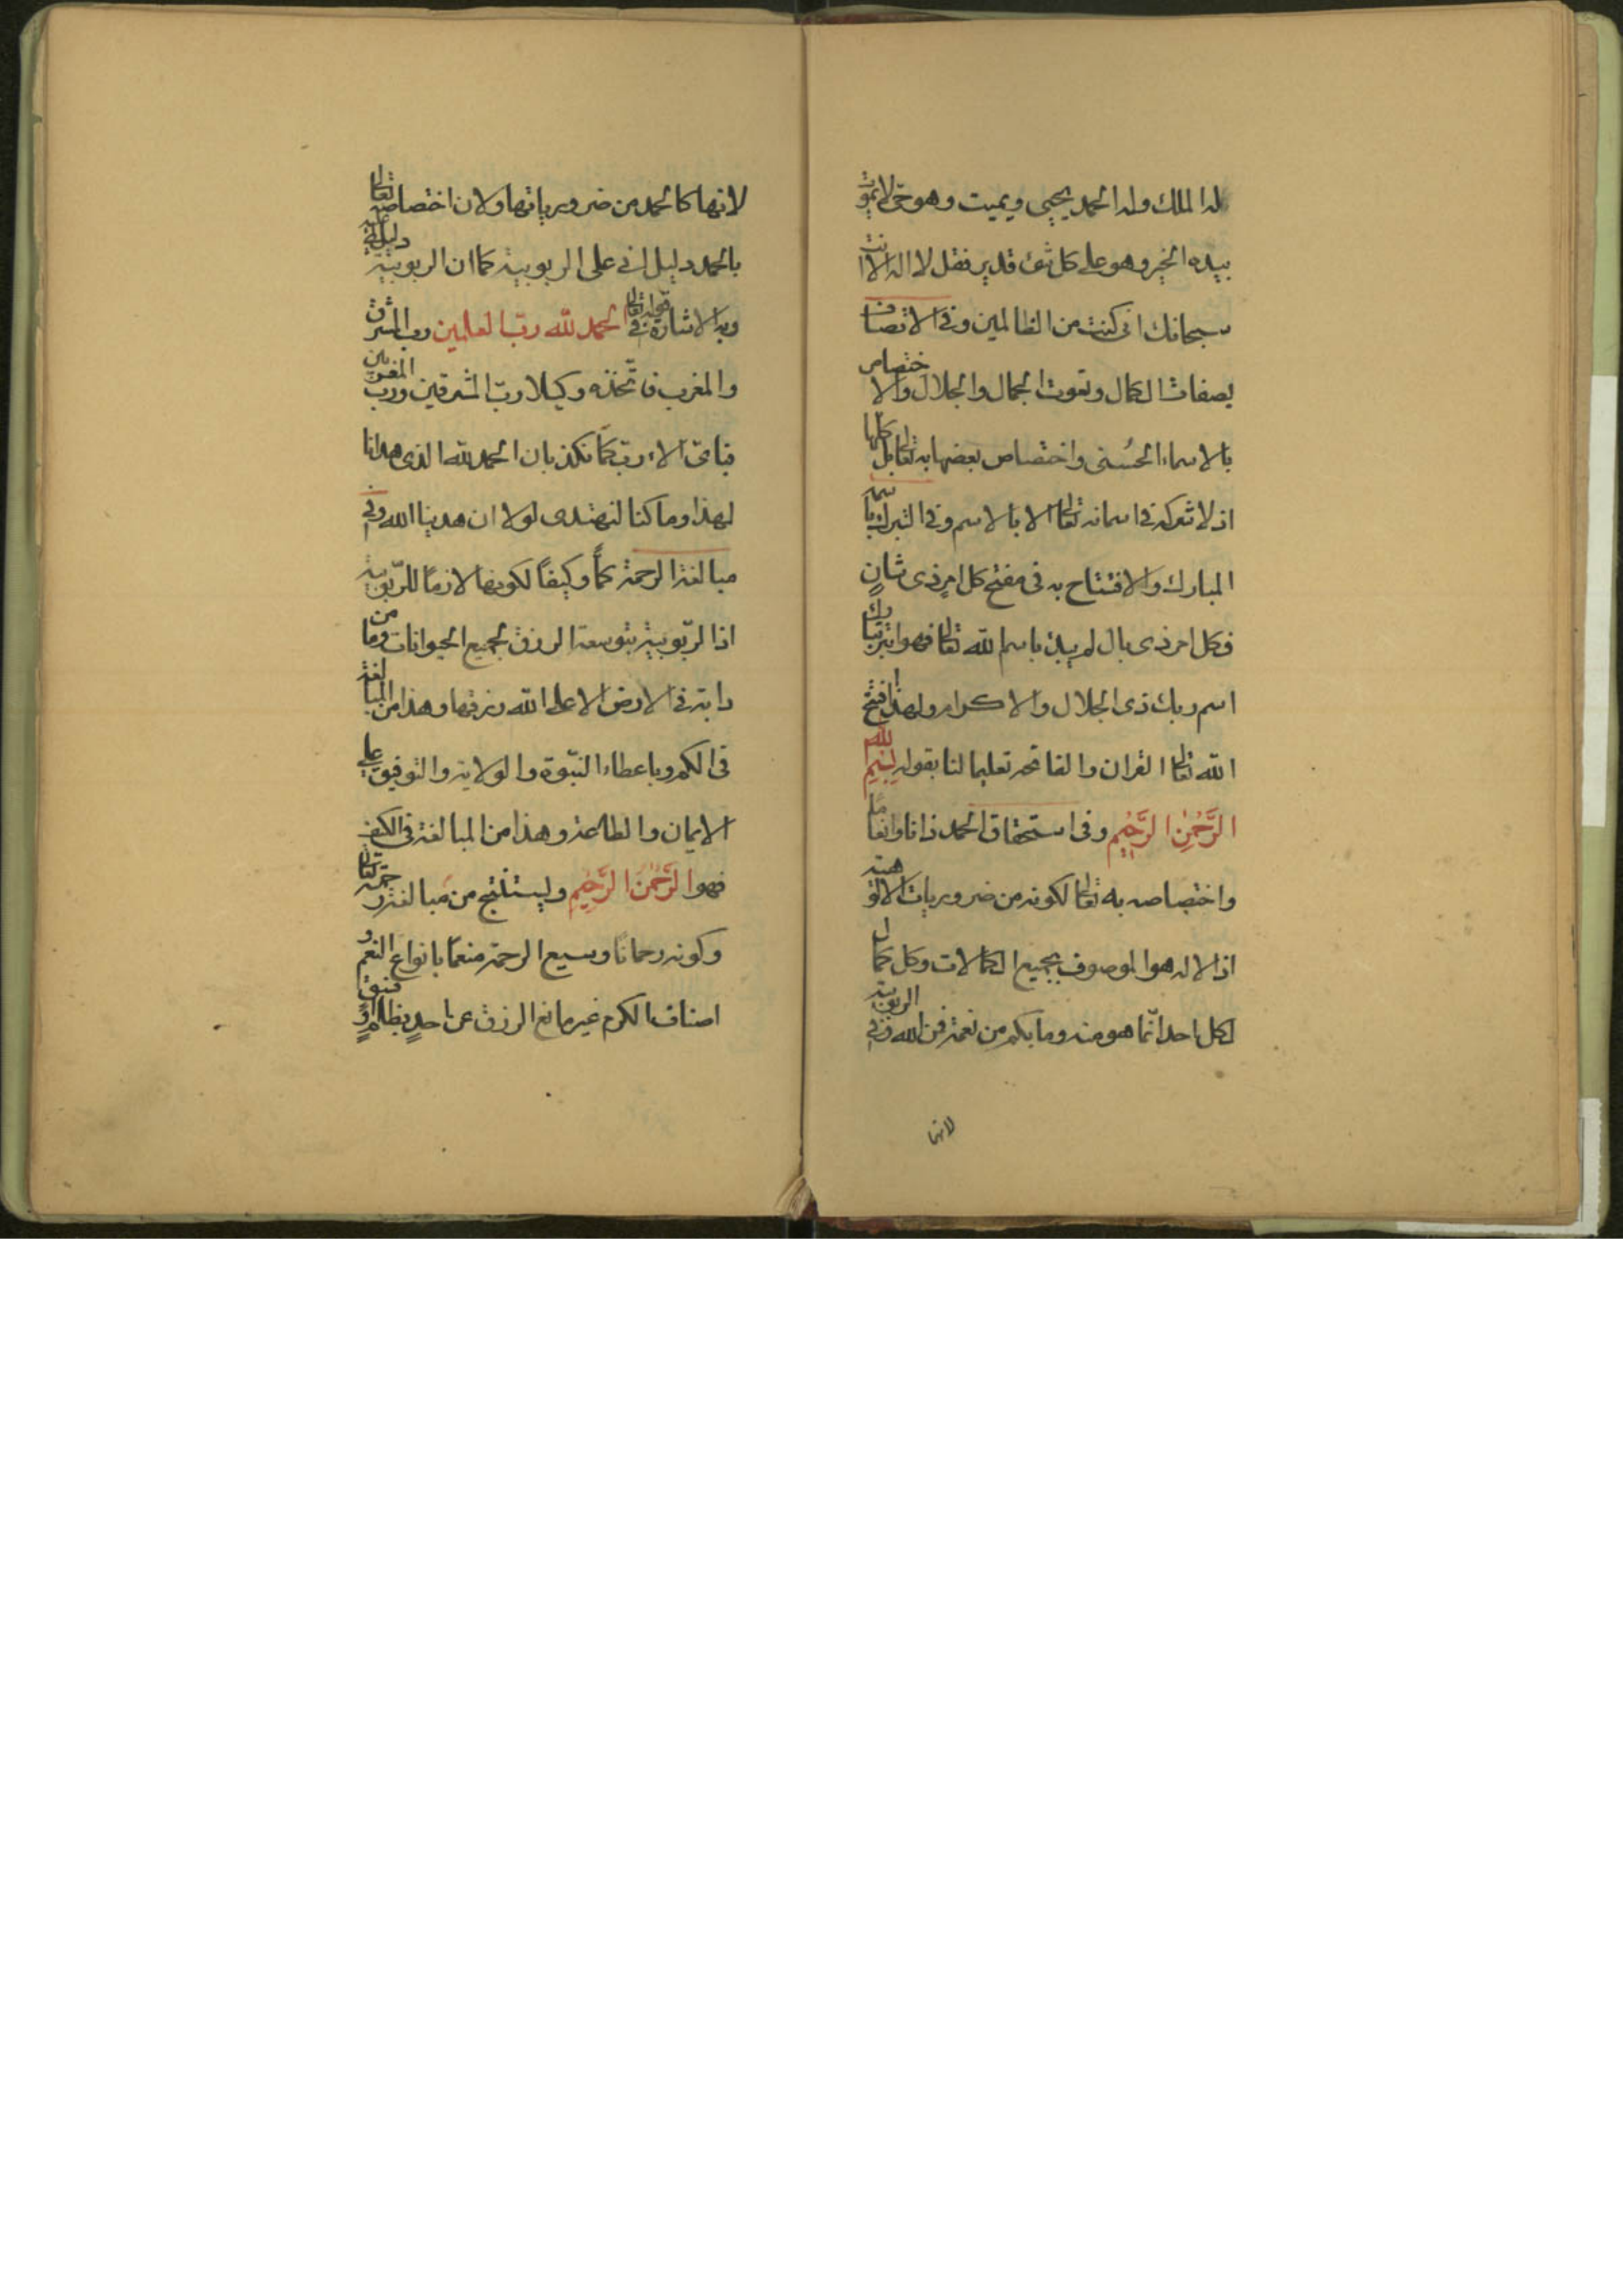 له الملك وله الحمد يحيى ويميت وهو حى لا يموت
بيده الخير وهو على كل شئ قدير فقل لا اله الا انت
سبحانك انى كنت من الظالمين وفى الاتصاف
بصفات الكمال ونعوت الجمال والجلال والاختصاص
بالاسماء الحُسنى واختصاص بعضها به تعالى بل كلها
اذ لا شركة فى اسمائه تعالى الا بالاسم وفى التبرك باسمه
المبارك والافتتاح به فى مفتح كل امرٍ ذى شانٍ
فكل امر ذى بال لم يبدء باسم الله تعالى فهو ابتر تبارك
اسم ربك ذى الجلال والاكرام ولهذا افتتح
الله تعالى القران والفاتحة تعليما لنا بقوله بِسْمِ الله
الرَّحْمٰنِ الرَّحِيْمِ وفى استحقاق الحمد ذاتا وانعاماً
واختصاصه به تعالى لكونه من ضروريات الالوهية
اذ الاله هو الموصوف بجميع الكمالات وكل كمال
لكل احد انّما هو منه وما بكم من نعمة فمن الله وفى الربوبية
لانها
لانها كالحمد من ضرورياتها ولان اختصاصه تعالى
بالحمد دليل انى على الربوبية كما ان الربوبية دليل عليه
وبه الاشارة فى قوله تعالى الحمد لله ربّ العلمين رب المشرق
والمغرب فاتّخذه وكيلا ربّ المشرقين ورب المغربين
فباىّ الاء ربّكما تكذبان الحمد لله الذى هدانا
لهذا وما كنا لنهتدى لولا ان هدينا الله وفى
مبالغة الرحمة كماً وكيفاً لكونها لازمًا للرّبوبية
اذ الرّبوبية بتوسعة الرزق لجميع الحيوانات وما من
دابة فى الارض الا على الله رزقها وهذا من المبالغة
فى الكم وباعطاء النبّوة والولاية والتوفيق على
الايمان والطاعة وهذا من المبالغة فى الكيف
فهو الرَّحْمٰنُ الرَّحِيْمِ وليستنتج من مبالغة رحمته تعالى
وكونه رحمانًا وسيع الرحمة منعمًا بانواع النعم و
اصناف الكرم غير مانع الرزق عن احدٍ بظلمٍ او فسق